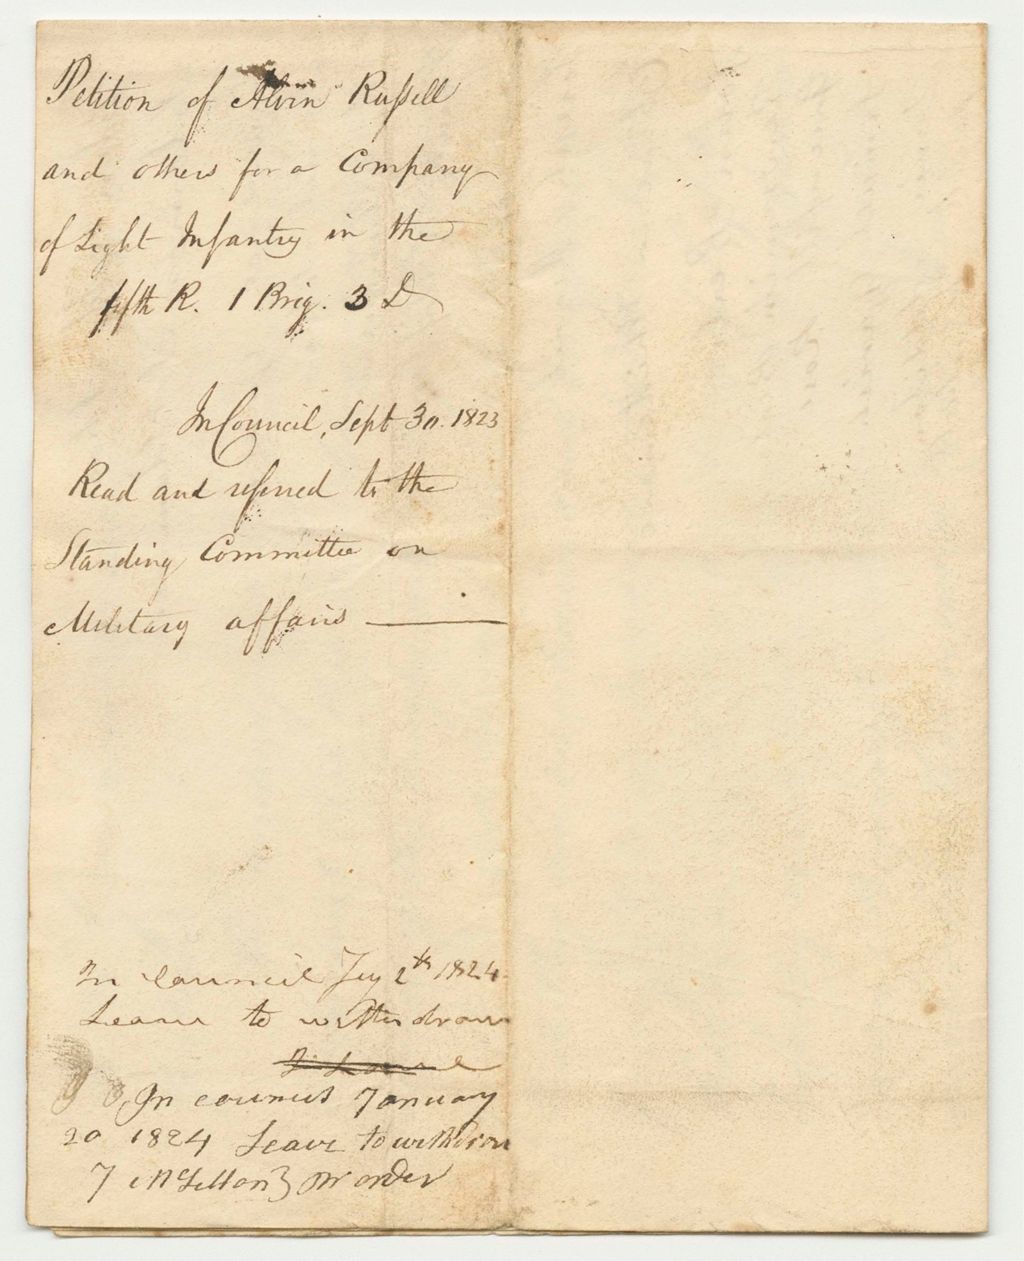 Petition of Alvin Russell
and others for a Company
of Light Infantry in the
fifth R. 1 Brig. 3 D
In Council, Sept 30. 1823
Read and referred to the
Standing Committee on
Military affairs
In Council Jny 2th 1824
Leave to withdraw
In council January
20 1824 Leave to withdraw
order